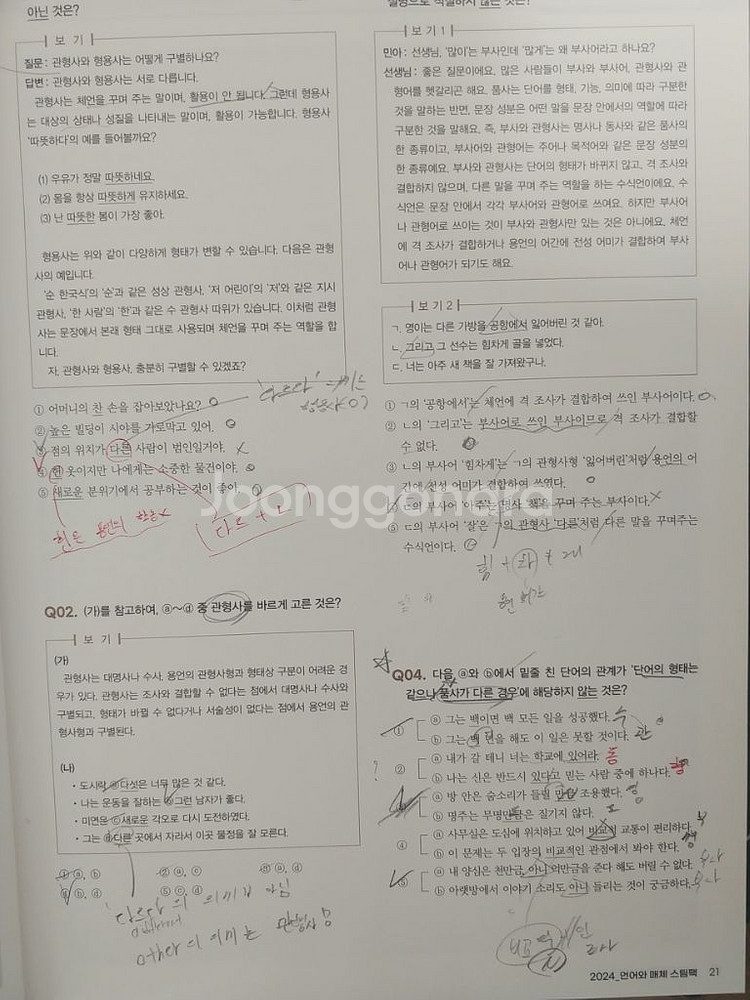 아닌 것은?
보 기
질문 : 관형사와 형용사는 어떻게 구별하나요?
답변 : 관형사와 형용사는 서로 다릅니다.
관형사는 체언을 꾸며 주는 말이며, 활용이 안 됩니다. 그런데 형용사
는 대상의 상태나 성질을 나타내는 말이며, 활용이 가능합니다. 형용사
'따뜻하다'의 예를 들어볼까요?
(1) 우유가 정말 따뜻하네요.
(2) 몸을 항상 따뜻하게 유지하세요.
(3) 난 따뜻한 봄이 가장 좋아.
형용사는 위와 같이 다양하게 형태가 변할 수 있습니다. 다음은 관형
사의 예입니다.
'순 한국식'의 '순'과 같은 성상 관형사, '저 어린이'의 '저'와 같은 지시
관형사, '한 사람'의 '한'과 같은 수 관형사 따위가 있습니다. 이처럼 관형
사는 문장에서 본래 형태 그대로 사용되며 체언을 꾸며 주는 역할을 합
니다.
자, 관형사와 형용사, 충분히 구별할 수 있겠죠?
① 어머니의 찬 손을 잡아보았나요?
② 높은 빌딩이 시야를 가로막고 있어.
③ 점의 위치가 다른 사람이 범인일거야.
④ 헌 옷이지만 나에게는 소중한 물건이야.
⑤ 새로운 분위기에서 공부하는 것이 좋아.
다르 + ㄴ
Q02. (가)를 참고하여, ⓐ~ⓓ 중 관형사를 바르게 고른 것은?
보 기
(가)
관형사는 대명사나 수사, 용언의 관형사형과 형태상 구분이 어려운 경
우가 있다. 관형사는 조사와 결합할 수 없다는 점에서 대명사나 수사와
구별되고, 형태가 바뀔 수 없다거나 서술성이 없다는 점에서 용언의 관
형사형과 구별된다.
(나)
• 도시락 ⓐ다섯은 너무 많은 것 같다.
• 나는 운동을 잘하는 ⓑ그런 남자가 좋다.
• 미연은 ⓒ새로운 각오로 다시 도전하였다.
• 그는 ⓓ다른 곳에서 자라서 이곳 물정을 잘 모른다.
① ⓐ, ⓑ ② ⓐ, ⓒ ③ ⓐ, ⓓ
④ ⓑ, ⓓ ⑤ ⓒ, ⓓ
'다르다'의 의미가 아님
other의 의미는 관형사임
설명으로 적절하지 않은 것은?
보 기 1
민아 : 선생님, '많이'는 부사인데 '많게'는 왜 부사어라고 하나요?
선생님 : 좋은 질문이에요. 많은 사람들이 부사와 부사어, 관형사와 관
형어를 헷갈리곤 해요. 품사는 단어를 형태, 기능, 의미에 따라 구분한
것을 말하는 반면, 문장 성분은 어떤 말을 문장 안에서의 역할에 따라
구분한 것을 말해요. 즉, 부사와 관형사는 명사나 동사와 같은 품사의
한 종류이고, 부사어와 관형어는 주어나 목적어와 같은 문장 성분의
한 종류예요. 부사와 관형사는 단어의 형태가 바뀌지 않고, 격 조사와
결합하지 않으며, 다른 말을 꾸며 주는 역할을 하는 수식언이에요. 수
식언은 문장 안에서 각각 부사어와 관형어로 쓰여요. 하지만 부사어
나 관형어로 쓰이는 것이 부사와 관형사만 있는 것은 아니에요. 체언
에 격 조사가 결합하거나 용언의 어간에 전성 어미가 결합하여 부사
어나 관형어가 되기도 해요.
보 기 2
ㄱ. 영이는 다른 가방을 공항에서 잃어버린 것 같아.
ㄴ. 그리고 그 선수는 힘차게 골을 넣었다.
ㄷ. 너는 아주 새 책을 잘 가져왔구나.
① ㄱ의 '공항에서'는 체언에 격 조사가 결합하여 쓰인 부사어이다.
② ㄴ의 '그리고'는 부사어로 쓰인 부사이므로 격 조사가 결합할
수 없다.
③ ㄴ의 부사어 '힘차게'는 ㄱ의 관형사형 '잃어버린'처럼 용언의 어
간에 전성 어미가 결합하여 쓰였다.
④ ㄷ의 부사어 '아주'는 명사 '책'을 꾸며 주는 부사이다.
⑤ ㄷ의 부사어 '잘'은 ㄱ의 관형사 '다른'처럼 다른 말을 꾸며주는
수식언이다.
Joonggonara
Q04. 다음 ⓐ와 ⓑ에서 밑줄 친 단어의 관계가 '단어의 형태는
같으나 품사가 다른 경우'에 해당하지 않는 것은?
① ⓐ 그는 백이면 백 모든 일을 성공했다. 수
ⓑ 그는 백 번을 해도 이 일은 못할 것이다. 관
② ⓐ 내가 갈 테니 너는 학교에 있어라. 동
ⓑ 나는 신은 반드시 있다고 믿는 사람 중에 하나다. 형
③ ⓐ 방 안은 숨소리가 들릴 만큼 조용했다.
ⓑ 명주는 무명만큼은 질기지 않다.
④ ⓐ 사무실은 도심에 위치하고 있어 비교적 교통이 편리하다. 부
ⓑ 이 문제는 두 입장의 비교적인 관점에서 봐야 한다.
⑤ ⓐ 내 양심은 천만금, 아니 억만금을 준다 해도 버릴 수 없다. 부사
ⓑ 아랫방에서 이야기 소리도 아니 들리는 것이 궁금하다. 부사
2024_언어와 매체 스팀팩 21